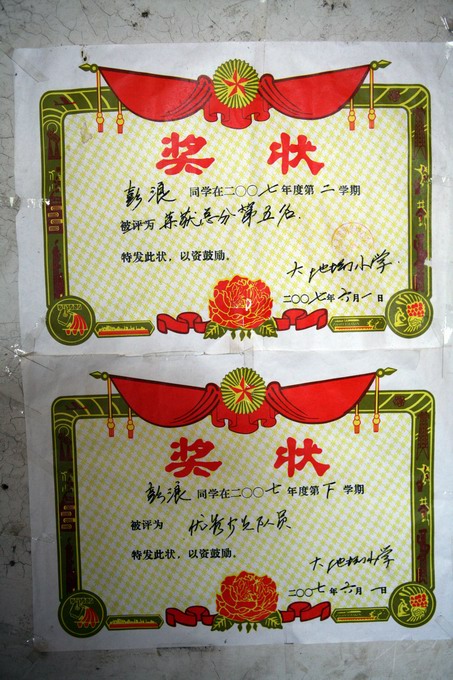 奖状
彭浪 同学在二〇〇七年度第二学期
被评为 荣获总分第五名.
特发此状，以资鼓励。
大地坳小学.
二〇〇七年六月一日
奖状
彭浪 同学在二〇〇七年度第下学期
被评为 优秀少先队员
特发此状，以资鼓励。
大地坳小学
二〇〇七年六月一日